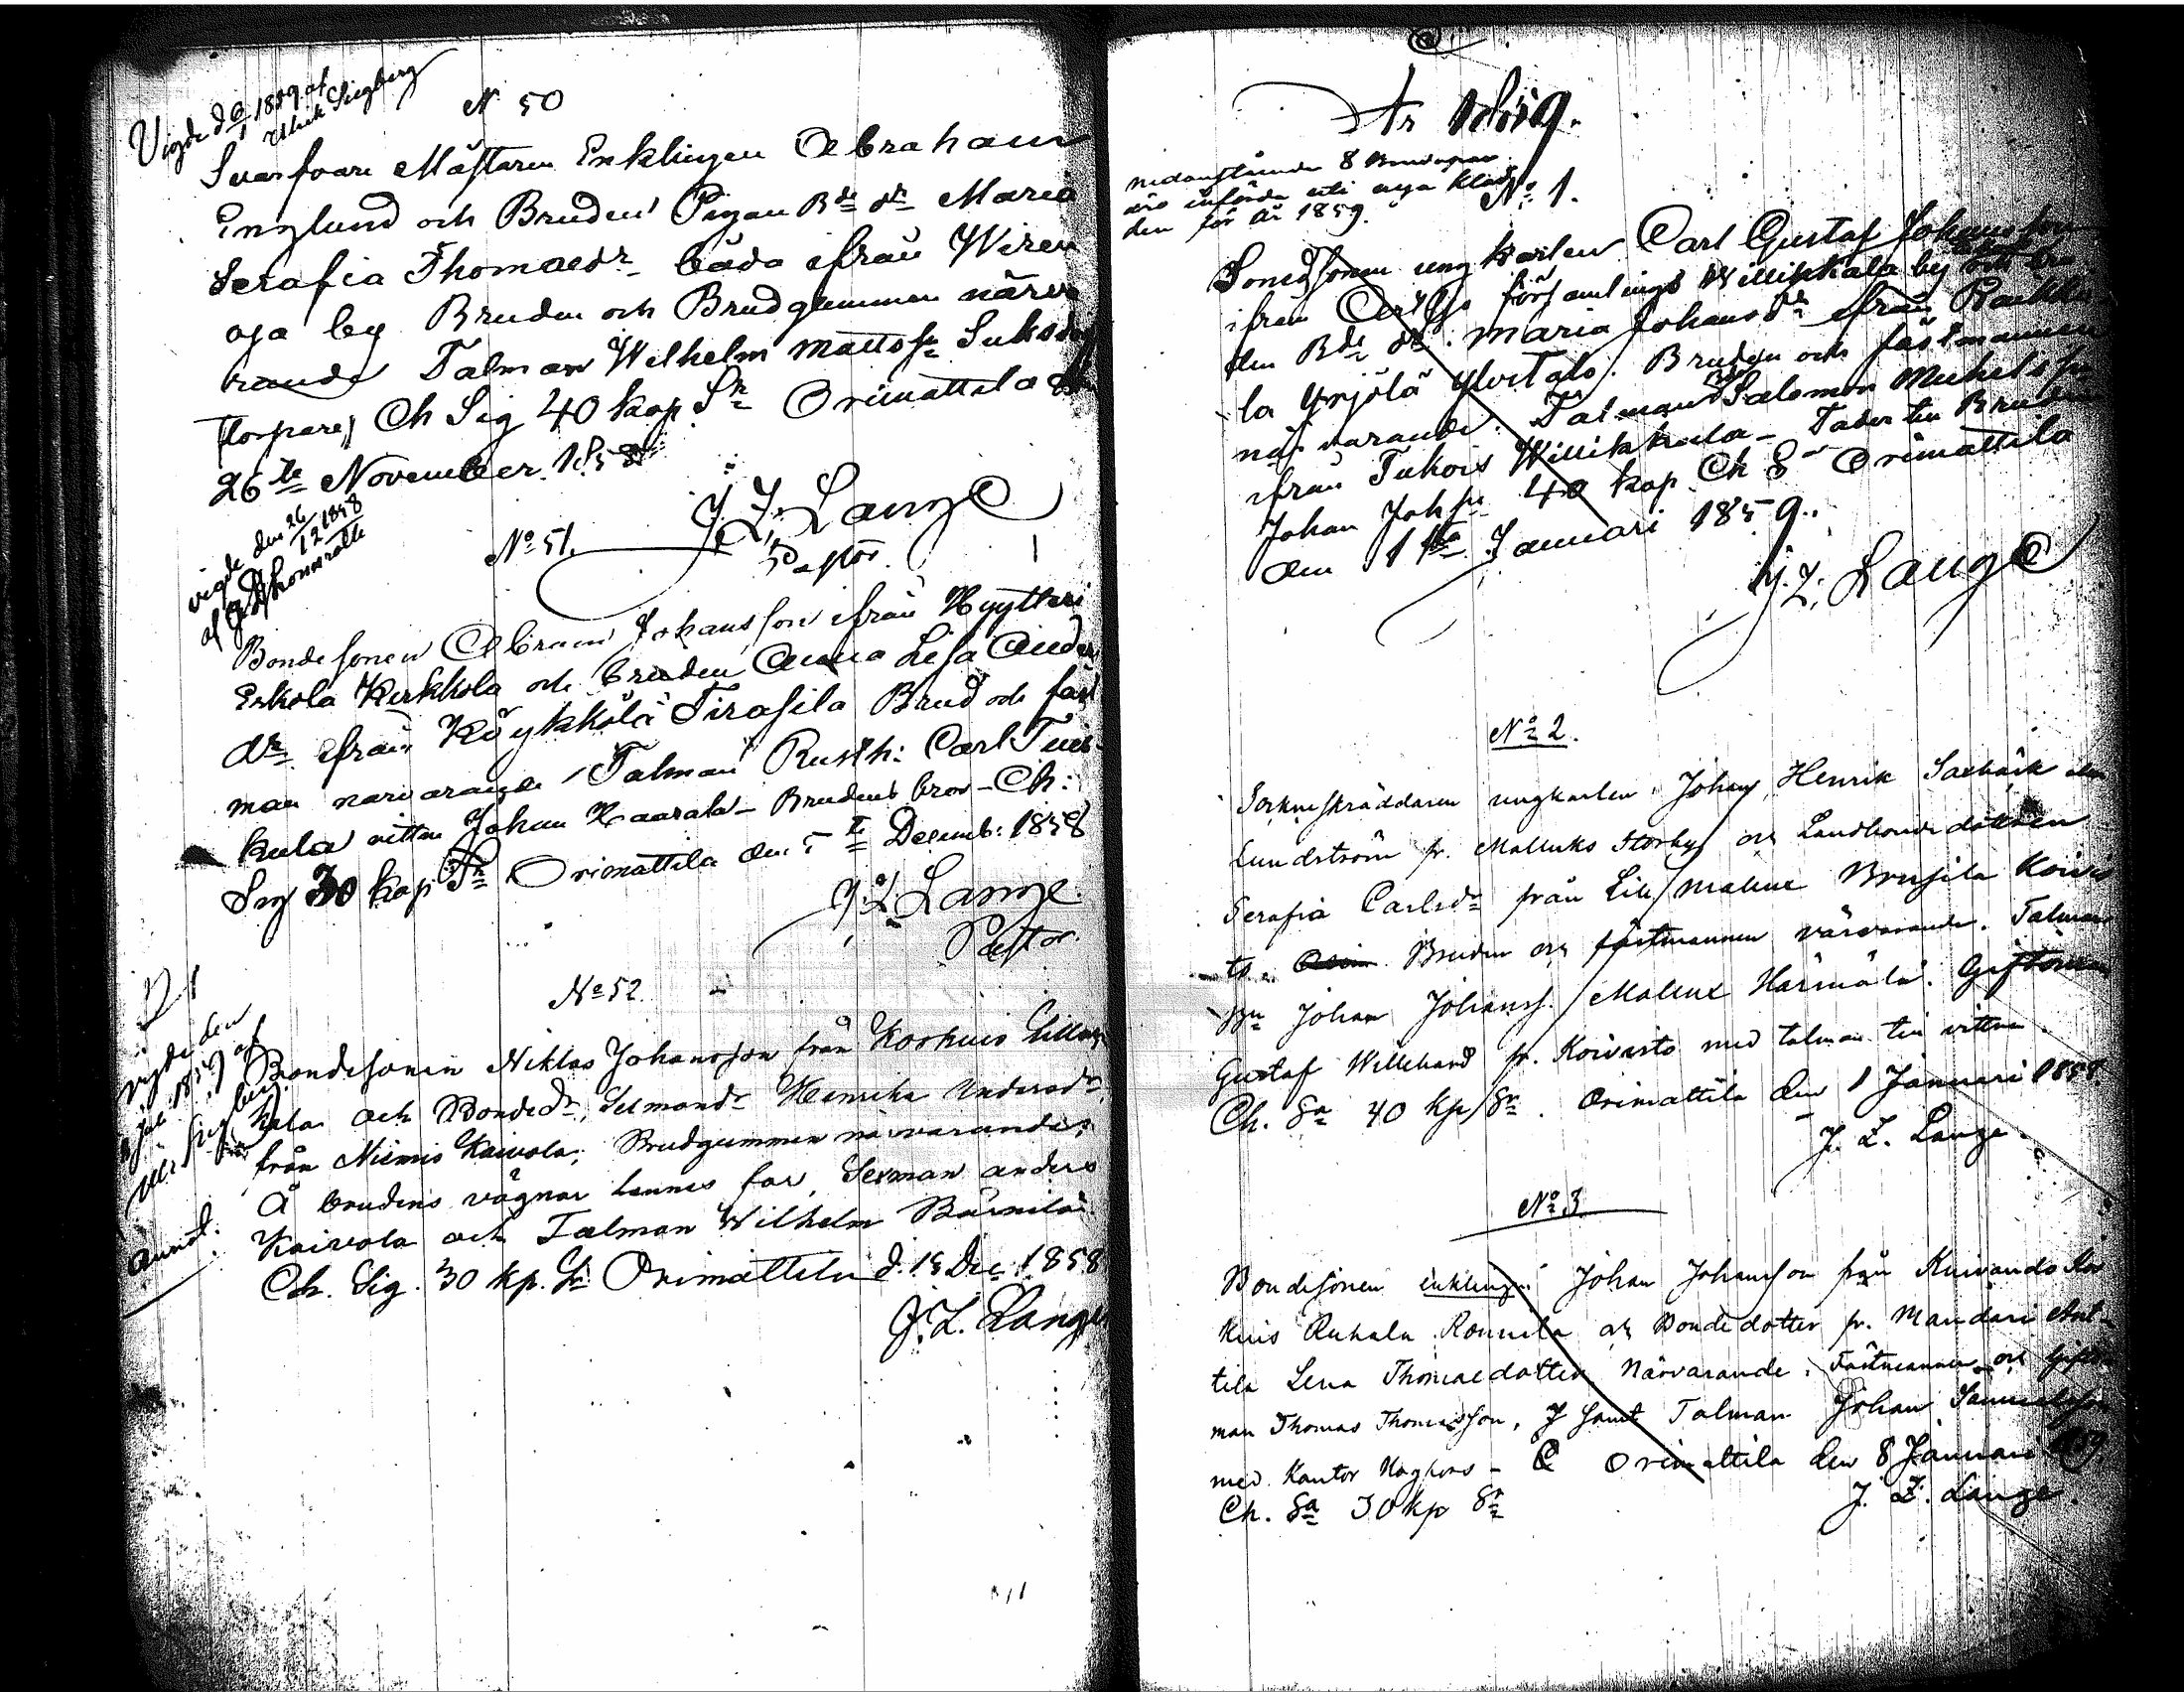 Vigde d 6/1 1859 af
Ulrik Siegberg
N 50
Svarfvare Mästaren Enklingen Abraham
Englund och Bruden Pigan Bde dr Maria
Serafia Thomaedr båda ifrån Wiren
oja by Bruden och Brudgummen närva
rande Talman Wilhelm Mattss
(torpare) Ch Sig 40 kop Sr Orimattila den
26te November 1858
J. Z. Lange
Pastor.
vigde den 26/12 1858
af
No 51.
Bondesonen Abram Johansson ifrån Hyytteri
Eskola Kerkkola och bruden Anna Lisa Anders
dr ifrån Köykkölä Tirasila Brud och fäst
man närvarande Talman Rusth: Carl
kula vittne Johan Haarala Brudens bror - Ch:
Sig 30 kop Sr Orimattila den 5te Decemb: 1858
J. Z. Lange.
Pastor.
No 52
vigde den
1859 af
Bondesonen Niklas Johansson från Korkuis
kala och Bondedr, Sexmandr Henrika Andersdr
från Niemis Kaivola; Brudgummen närvarande;
Å brudens vägnar hennes far, Sexman Anders
Kaivola och Talman Wilhelm
annot.
Ch. Sig. 30 kp. Sr Orimattila d. 15 Dec 1858
J. Z. Lange
År 1859.
nedanstående 8 Brudepar
äro införda uti nya Kladd
den för år 1859.
No 1.
Bondesonen ungkarlen Carl Gustaf Johansson
ifrån Artsjö församlings Willikkala by och
den Bde dr. Maria Johansdr ifrån
la Yrjölä Ylöstalo. Bruden och fästmannen
närvarande. Talman Salomon Michelss
ifrån Tukois Willikkala - Fader till Bruden
Johan Johss 40 kop Ch S Orimattila
den 1sta Januari 1859.
J. Z. Lange
No 2.
Sockneskräddaren ungkarlen Johan Henrik
Lundström fr. Mallusks Storby och Landbondedottren
Serafia Carlsdr från Lill Mallux Koivis
to. Bruden och fästmannen närvarande. Talman
Bn Johan Johanss. Mallux Härmälä. Giftoman
Gustaf Willebrand fr. Koivisto med talman till vittne.
Ch. Sa 40 kp Sr. Orimattila den 1 Januari 1859.
J. Z. Lange.
No 3
Bondesonen enklingen Johan Johansson från Kuivando Kor
kuis Ronnila och Bondedotter fr. Mandari Ant-
tila Lena Thomaedotter Närvarande: Fästmannen och Gifto
man Thomas Thomasson, J samt Talman Johan Samuelsson
med Kantor - Orimattila den 8 Januari 1859
Ch. Sa 30 kp Sr
J. Z. Lange.